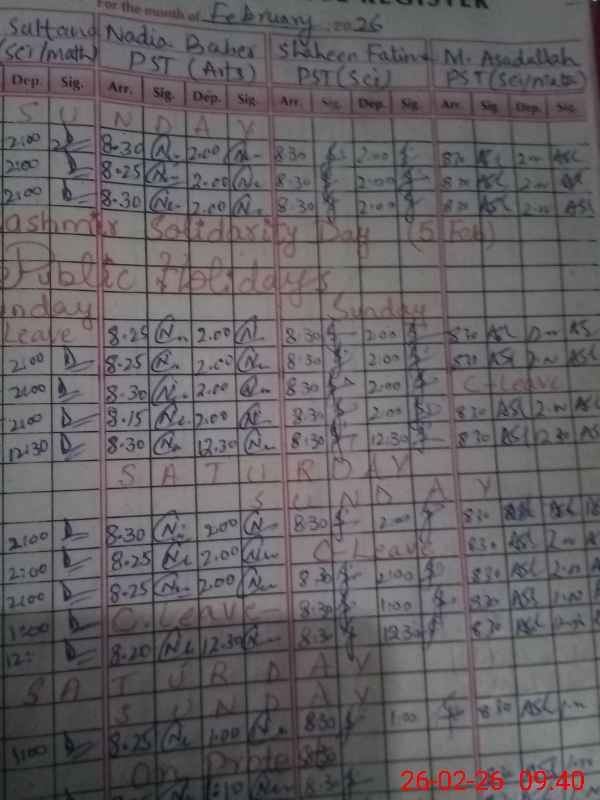 REGISTER
For the month of February 2026
Sultana Nadia Baher Shaheen Fatima M. Asadullah
(Sci/math) PST (Arts) PST (Sci) PST (Sci/math)
Dep. Sig. Arr. Sig. Dep. Sig. Arr. Sig. Dep. Sig. Arr. Sig. Dep. Sig.
S U N D A Y
2:00 8.30 2.00 8.30 2.00 8.30 ASL 2.00 ASL
2:00 8.25 2.00 8.30 2.00 8.30 ASL 2.00 ASL
2:00 8.30 2.00 8.30 2.00 8.30 ASL 2.00 ASL
ashmir Solidarity Day (5 Feb)
Public Holidays
nday Sunday
Leave 8.25 2.00 8.30 2.00 8.30 ASL 2.00 AS
2:00 8.25 2.00 8.30 2.00 8.30 ASL 2.00 ASL
2:00 8.30 2.00 8.30 2.00 C-Leave
2:00 8.15 2.00 8.30 2.00 8.30 ASL 2.00 ASL
12:30 8.30 12.30 8.30 12.30 8.30 ASL 12.30 AS
S A T U R D A Y
S U N D A Y
2:00 8.30 2.00 8.30 2.00 8.30
2:00 8.25 2.00 C-Leave 8.30 ASL 2.00 A
2:00 8.25 2.00 8.30 2:00 8.30 ASL 2.00 A
1:00 C.Leave 8.30 1.00 8.30 ASL 1.00
12: 8.20 12.30 8.30 12.30 8.30 ASL
S A T U R D A Y
S U N D A Y
1:00 8.25 1.00 8.30 1.00 8.30 ASL
On Prote
8.30 ASL
26-02-26 09:40